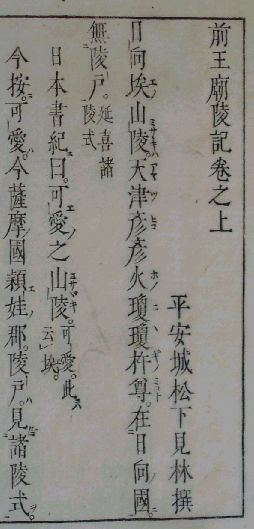 前王廟陵記卷之上
平安城松下見林撰
日向埃山陵。天津彦彦火瓊瓊杵尊。在日向國。
無陵戸。延喜諸陵式
日本書紀曰。可愛之山陵。可愛。此云埃。
今按。可愛。今薩摩國頴娃郡。陵戸。見諸陵式。